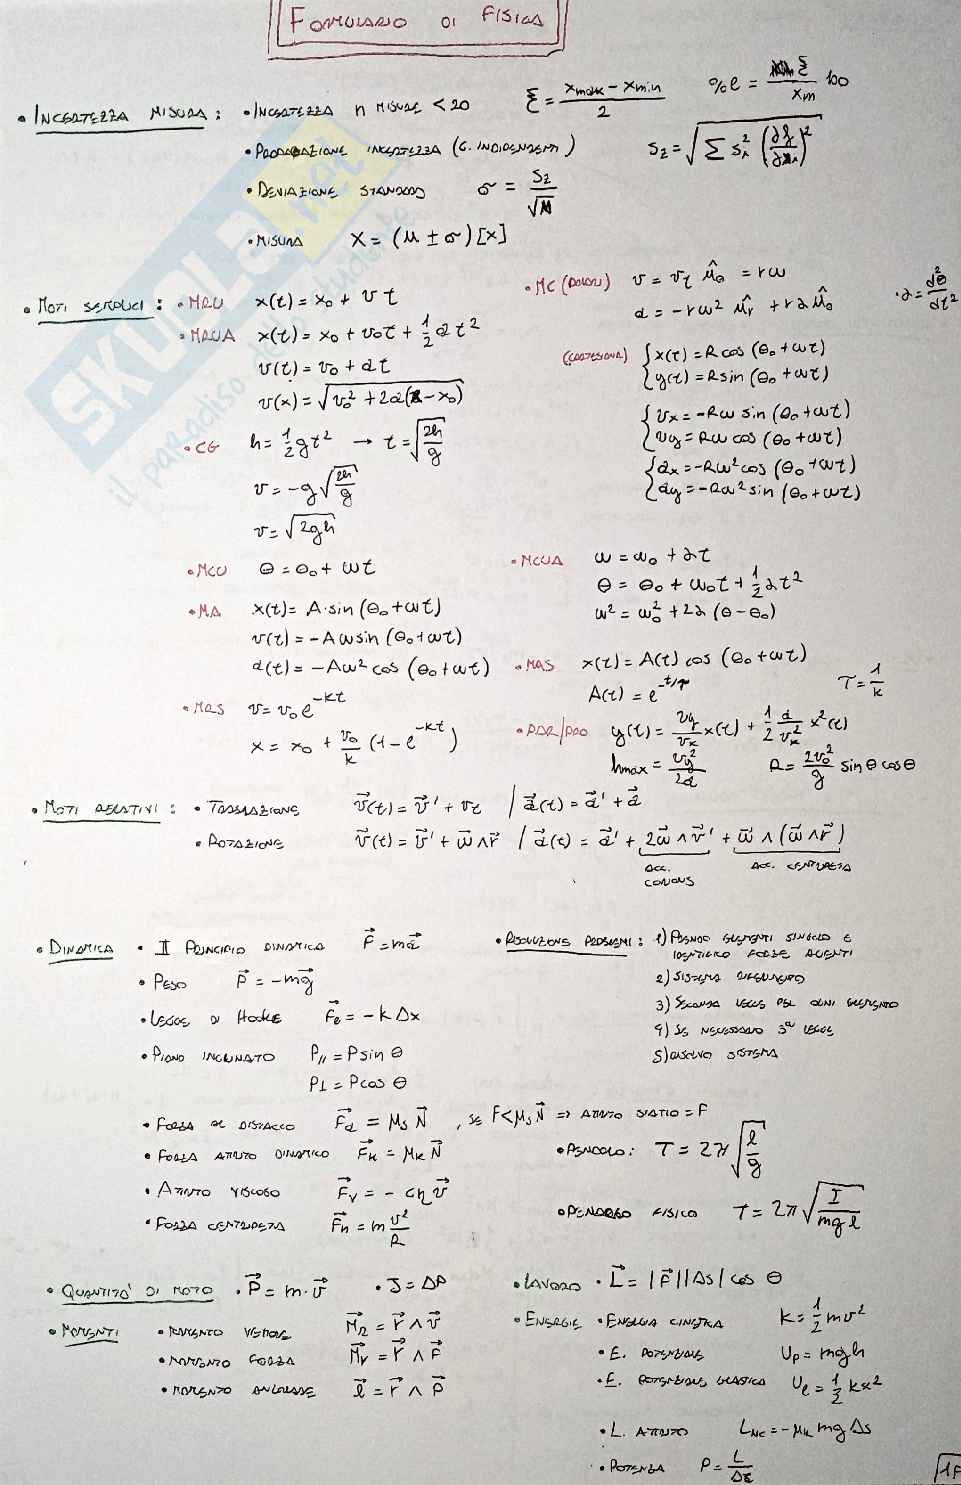 FORMULARIO DI FISICA
• INCERTEZZA MISURA: • INCERTEZZA n MISURE < 20 ξ = (x_max - x_min)/2 %e = ξ/x_m 100
• PROPAGAZIONE INCERTEZZA (G. INDIPENDENTI) S_z = √(∑ S_i² (∂f/∂x_i)²)
• DEVIAZIONE STANDARD σ = S_z/√N
• MISURA X = (μ ± σ)[x]
• MOTI SEMPLICI: • MRU x(t) = x₀ + vt
• MRUA x(t) = x₀ + v₀t + 1/2 at²
v(t) = v₀ + at
v(x) = √(v₀² + 2a(x - x₀))
• CG h = 1/2 gt² → t = √(2h/g)
v = -g√(2h/g)
v = √(2gh)
• MC (POLARI) v = v_t û_θ = rω
a = -rω² û_r + rα û_θ • α = d²θ/dt²
(CARTESIANE) { x(t) = R cos (θ₀ + ωt)
y(t) = R sin (θ₀ + ωt)
{ v_x = -Rω sin (θ₀ + ωt)
v_y = Rω cos (θ₀ + ωt)
{ a_x = -Rω² cos (θ₀ + ωt)
a_y = -Rω² sin (θ₀ + ωt)
• MCU θ = θ₀ + ωt
• MCUA ω = ω₀ + αt
θ = θ₀ + ω₀t + 1/2 αt²
ω² = ω₀² + 2α (θ - θ₀)
• MA x(t) = A·sin (θ₀ + ωt)
v(t) = -Aω sin (θ₀ + ωt)
a(t) = -Aω² cos (θ₀ + ωt)
• MAS x(t) = A(t) cos (θ₀ + ωt)
A(t) = e^(-t/τ) τ = 1/k
• MRS v = v₀ e^(-kt)
x = x₀ + v₀/k (1 - e^(-kt))
• PAR/PRO y(t) = v_y/v_x x(t) + 1/2 a/v_x² x²(t)
h_max = v_y²/2a R = 2v₀²/g sin θ cos θ
• MOTI RELATIVI: • TRASLAZIONE v⃗(t) = v⃗' + v_t / a⃗(t) = a⃗' + a⃗
• ROTAZIONE v⃗(t) = v⃗' + ω⃗ ∧ r⃗ / a⃗(t) = a⃗' + 2ω⃗ ∧ v⃗' + ω⃗ ∧ (ω⃗ ∧ r⃗)
ACC. CORIOLIS ACC. CENTRIPETA
• DINAMICA • II PRINCIPIO DINAMICA F⃗ = ma⃗
• PESO P⃗ = -mg⃗
• LEGGE DI HOOKE F⃗_e = -kΔx
• PIANO INCLINATO P_// = P sin θ
P_⊥ = P cos θ
• FORZA DI DISTACCO F⃗_d = μ_s N⃗, SE F < μ_s N⃗ => ATTRITO STATICO = F
• FORZA ATTRITO DINAMICO F⃗_k = μ_k N⃗
• ATTRITO VISCOSO F⃗_v = -cηv⃗
• FORZA CENTRIPETA F⃗_n = m v²/R
• RISOLUZIONE PROBLEMI: 1) PRENDO ELEMENTI SINGOLI E
IDENTIFICO FORZE AGENTI
2) SISTEMA RIFERIMENTO
3) SECONDA LEGGE PER OGNI ELEMENTO
4) SE NECESSARIO 3ª LEGGE
5) RISOLVO SISTEMA
• PENDOLO: T = 2π√(l/g)
• PENDOLO FISICO T = 2π√(I/mgl)
• QUANTITÀ DI MOTO • P⃗ = m·v⃗ • J = ΔP
• MOMENTI • MOMENTO VETTORE M⃗_r = r⃗ ∧ v⃗
• MOMENTO FORZA M⃗_v = r⃗ ∧ F⃗
• MOMENTO ANGOLARE l⃗ = r⃗ ∧ P⃗
• LAVORO • L⃗ = |F⃗||Δs| cos θ
• ENERGIE • ENERGIA CINETICA K = 1/2 mv²
• E. POTENZIALE U_p = mgh
• E. POTENZIALE ELASTICA U_e = 1/2 kx²
• L. ATTRITO L_NC = -μ_k mg Δs
• POTENZA P = L/Δt
SKUOLA.net
il paradiso dello studente